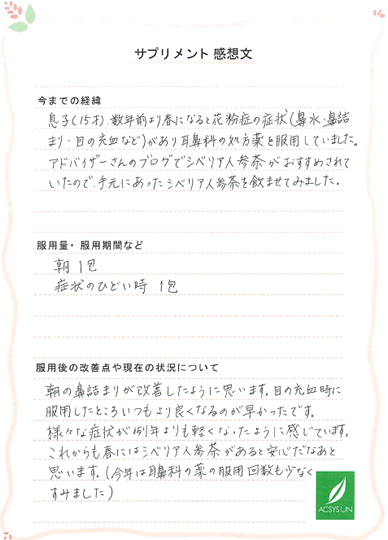 サプリメント 感想文
今までの経緯
息子(15才)、数年前より春になると花粉症の症状(鼻水・鼻詰
まり・目の充血など)があり耳鼻科の処方薬を服用していました。
アドバイザーさんのブログでシベリア人参茶がおすすめされて
いたので、手元にあったシベリア人参茶を飲ませてみました。
服用量・服用期間など
朝 1包
症状のひどい時 1包
服用後の改善点や現在の状況について
朝の鼻詰まりが改善したように思います。目の充血時に
服用したところいつもより良くなるのが早かったです。
様々な症状が例年よりも軽くなったように感じています。
これからも春にはシベリア人参茶があると安心だなあと
思います。(今年は耳鼻科の薬の服用回数も少なく
すみました)
ACSYSUN